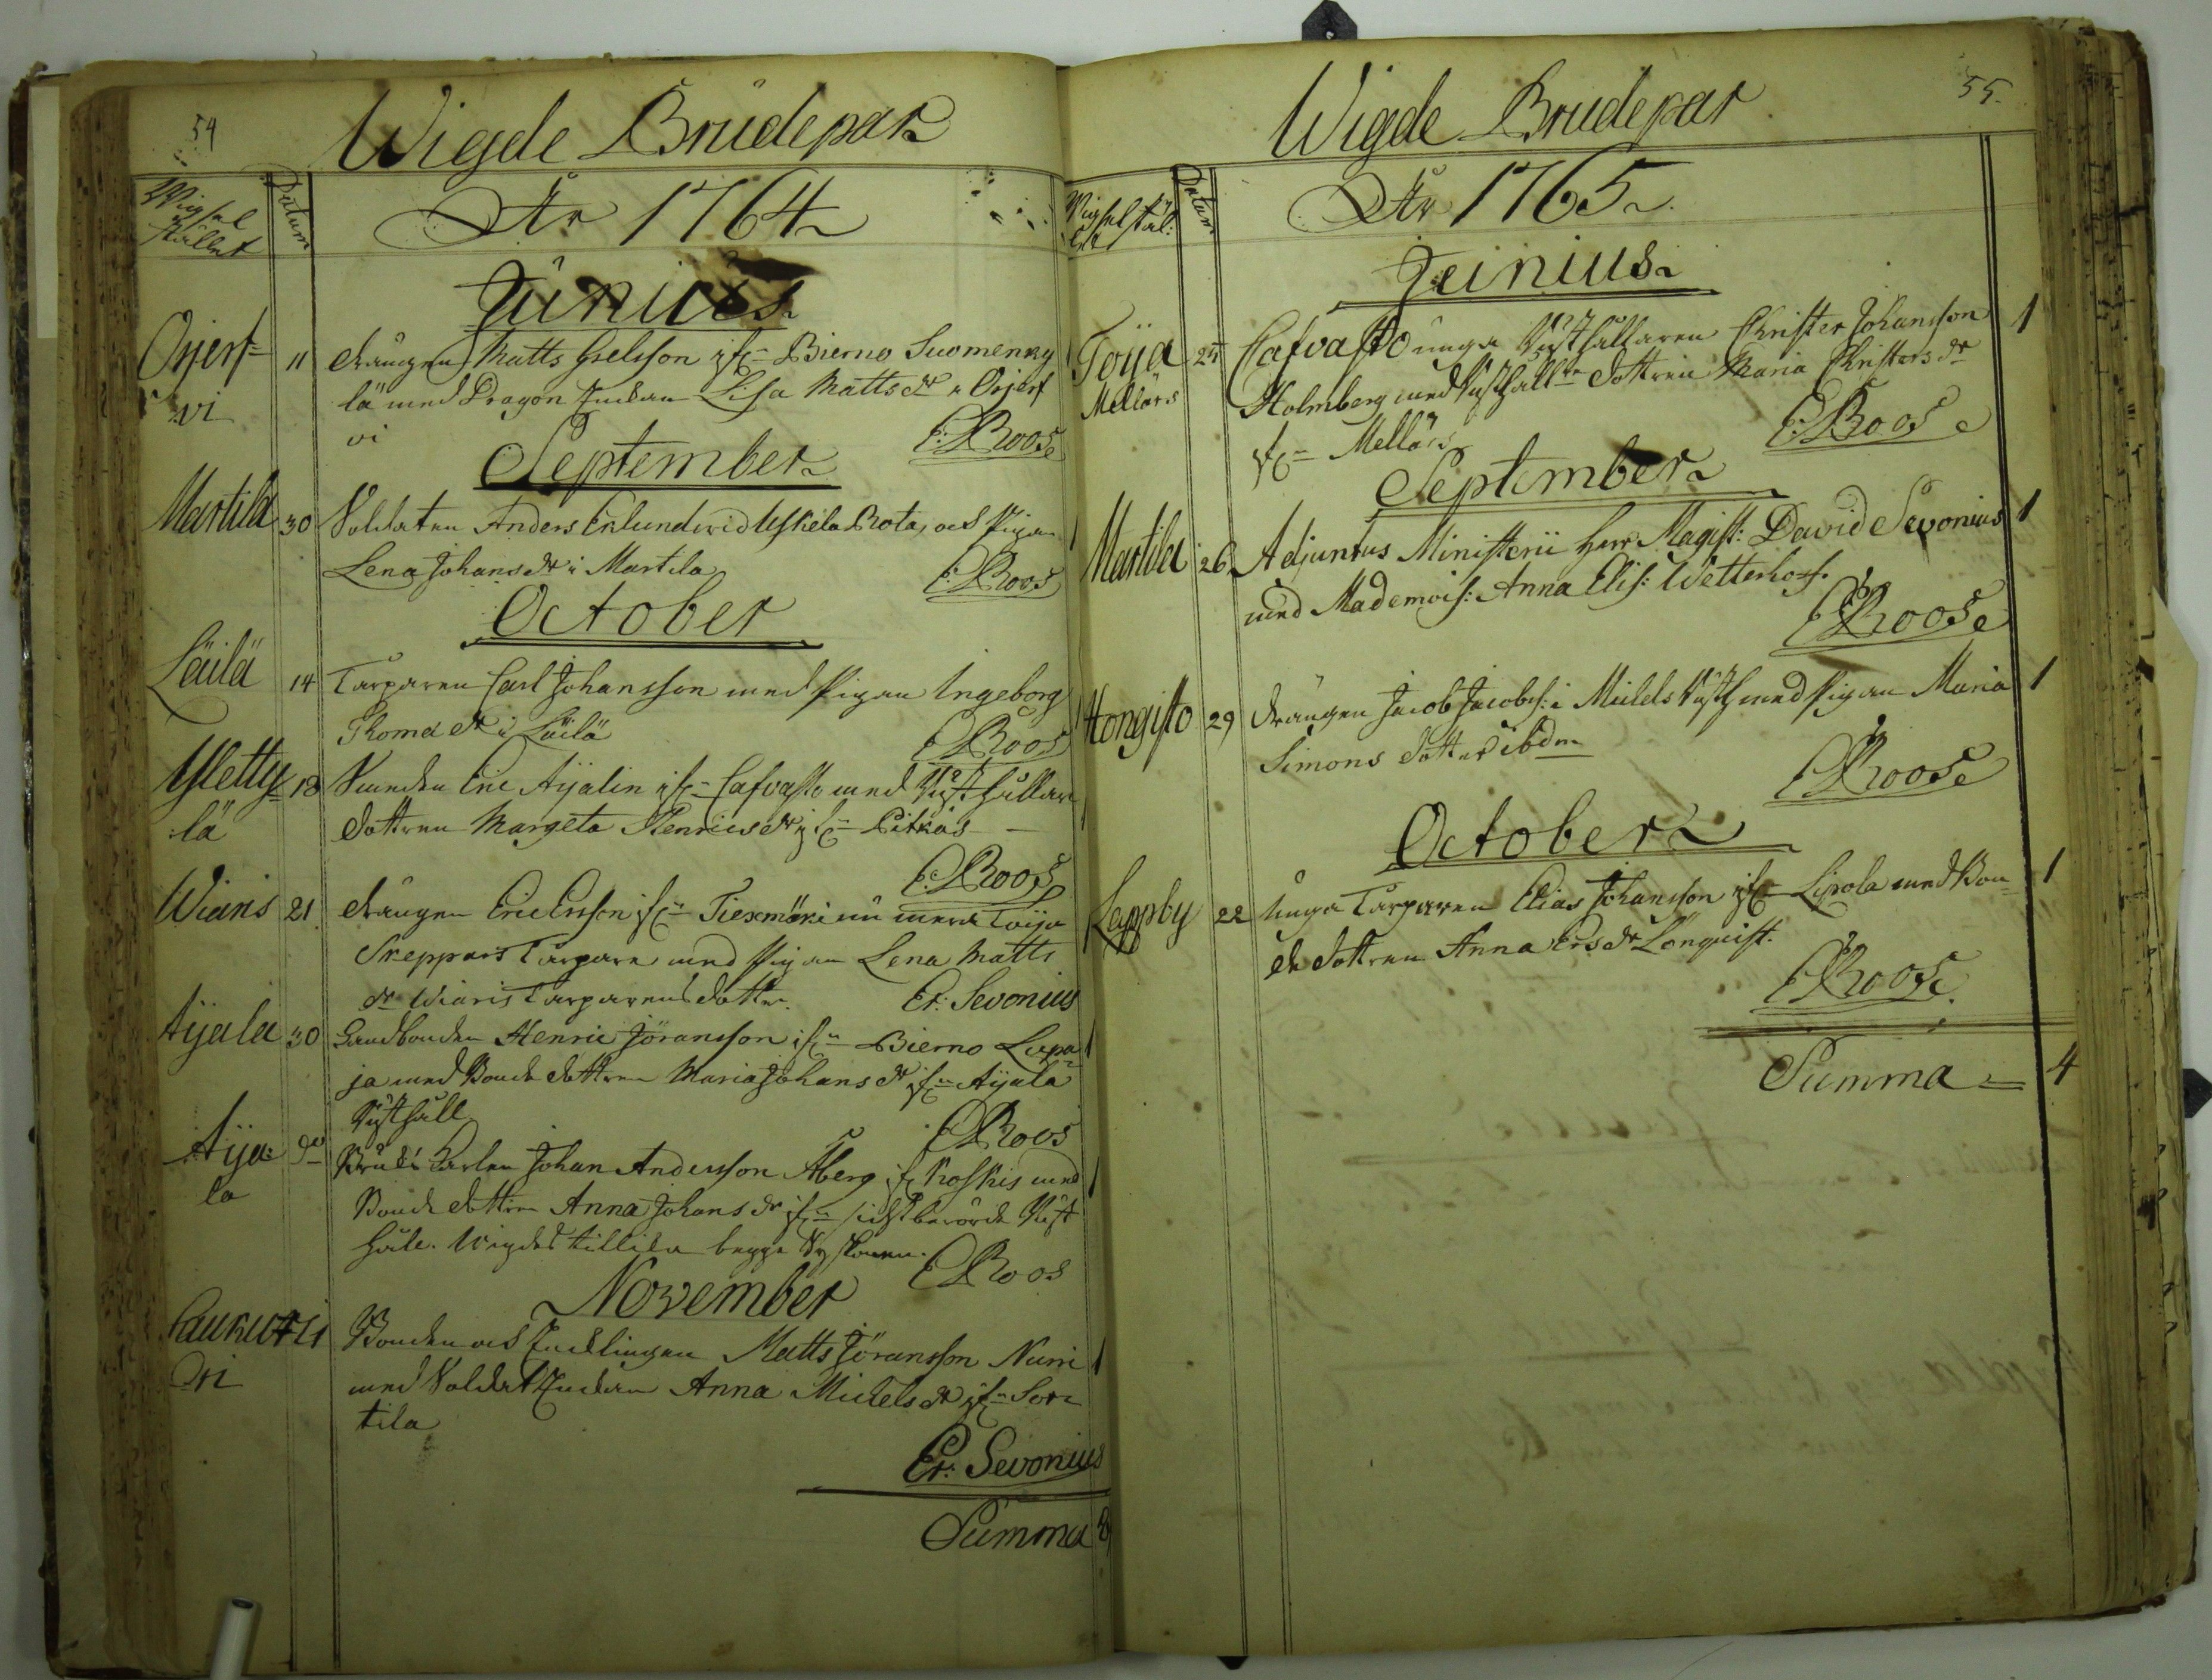 54
Wigde Brudepar
Wigsel
stället
Datum
År 1764
Junius
Orjerf=
wi
11
drängen Matts Grelsson ifrn Bierno Suomenky
lä med Dragon Enckan Lisa Mattsdr i Orjerf
vi
E. Roos
September
Martila
30
Soldaten Anders Eklund wid Uskela Rota, och Pigan
Lena Johansdr i Martila
E. Roos
October
Läilä
14
Torparen Carl Johansson med Pigan Ingeborg
Thomadr i Läilä
E. Roos
Yletty=
lä
18
Smeden Eric Aijalin ifrn Cafvasto med Rusthållare
dottren Margeta Henricsdr ifrn Pitkäs
E. Roos
Wiaris
21
drängen Eric Ersson ifrn Tiexmäki nu mera Toija
Skeppars Torpare med Pigan Lena Matts
dr Wiaris Torparens dotter.
Er. Sevonius
Aijala
30
Landbonden Henric Jöransson ifrn Bierno Lupa
ja med Bonde dottren Maria Johansdr ifrn Aijala
Rusthåll
E Roos
1
Aija=
la
do
Bruks Karlen Johan Andersson Åberg ifr Koskis med
Bonde dottren Anna Johansdr ifrn sidstberörde Rust
håll. Wigdes tillika begge Syskonen.
E Roos
1
November
Laukuri
11
Bonden och Encklingen Matts Jöransson Nurri
med Soldat Enckan Anna Michelsdr ifrn Sor
tila
1
Er. Sevonius
Summa 8
55.
Wigde Brudepar
Wigsel stäl:
let
Datum
År 1765
Junius
Toija
Mellärs
24
Cafvasto unga Rusthållaren Christer Johansson
Holmberg med Rusthåll dottren Maria Christersdr
ifrn Mellärs
E. Roos
1
September
Martila
26
Adjunctus Ministerii Herr Magist: David Sevonius
med Mademois: Anna Elis: Wetterhoff.
E Roos
1
Hongisto
29
drängen Jacob Jacobss: i Michels Rusth med Pigan Maria
Simons dotter ibdm
E Roos
1
October
Lappby
22
Unga Torparen Elias Johansson ifrn Lipola med Bon
de dottren Anna Ersdr Lönquist.
E Roos
1
Summa = 4